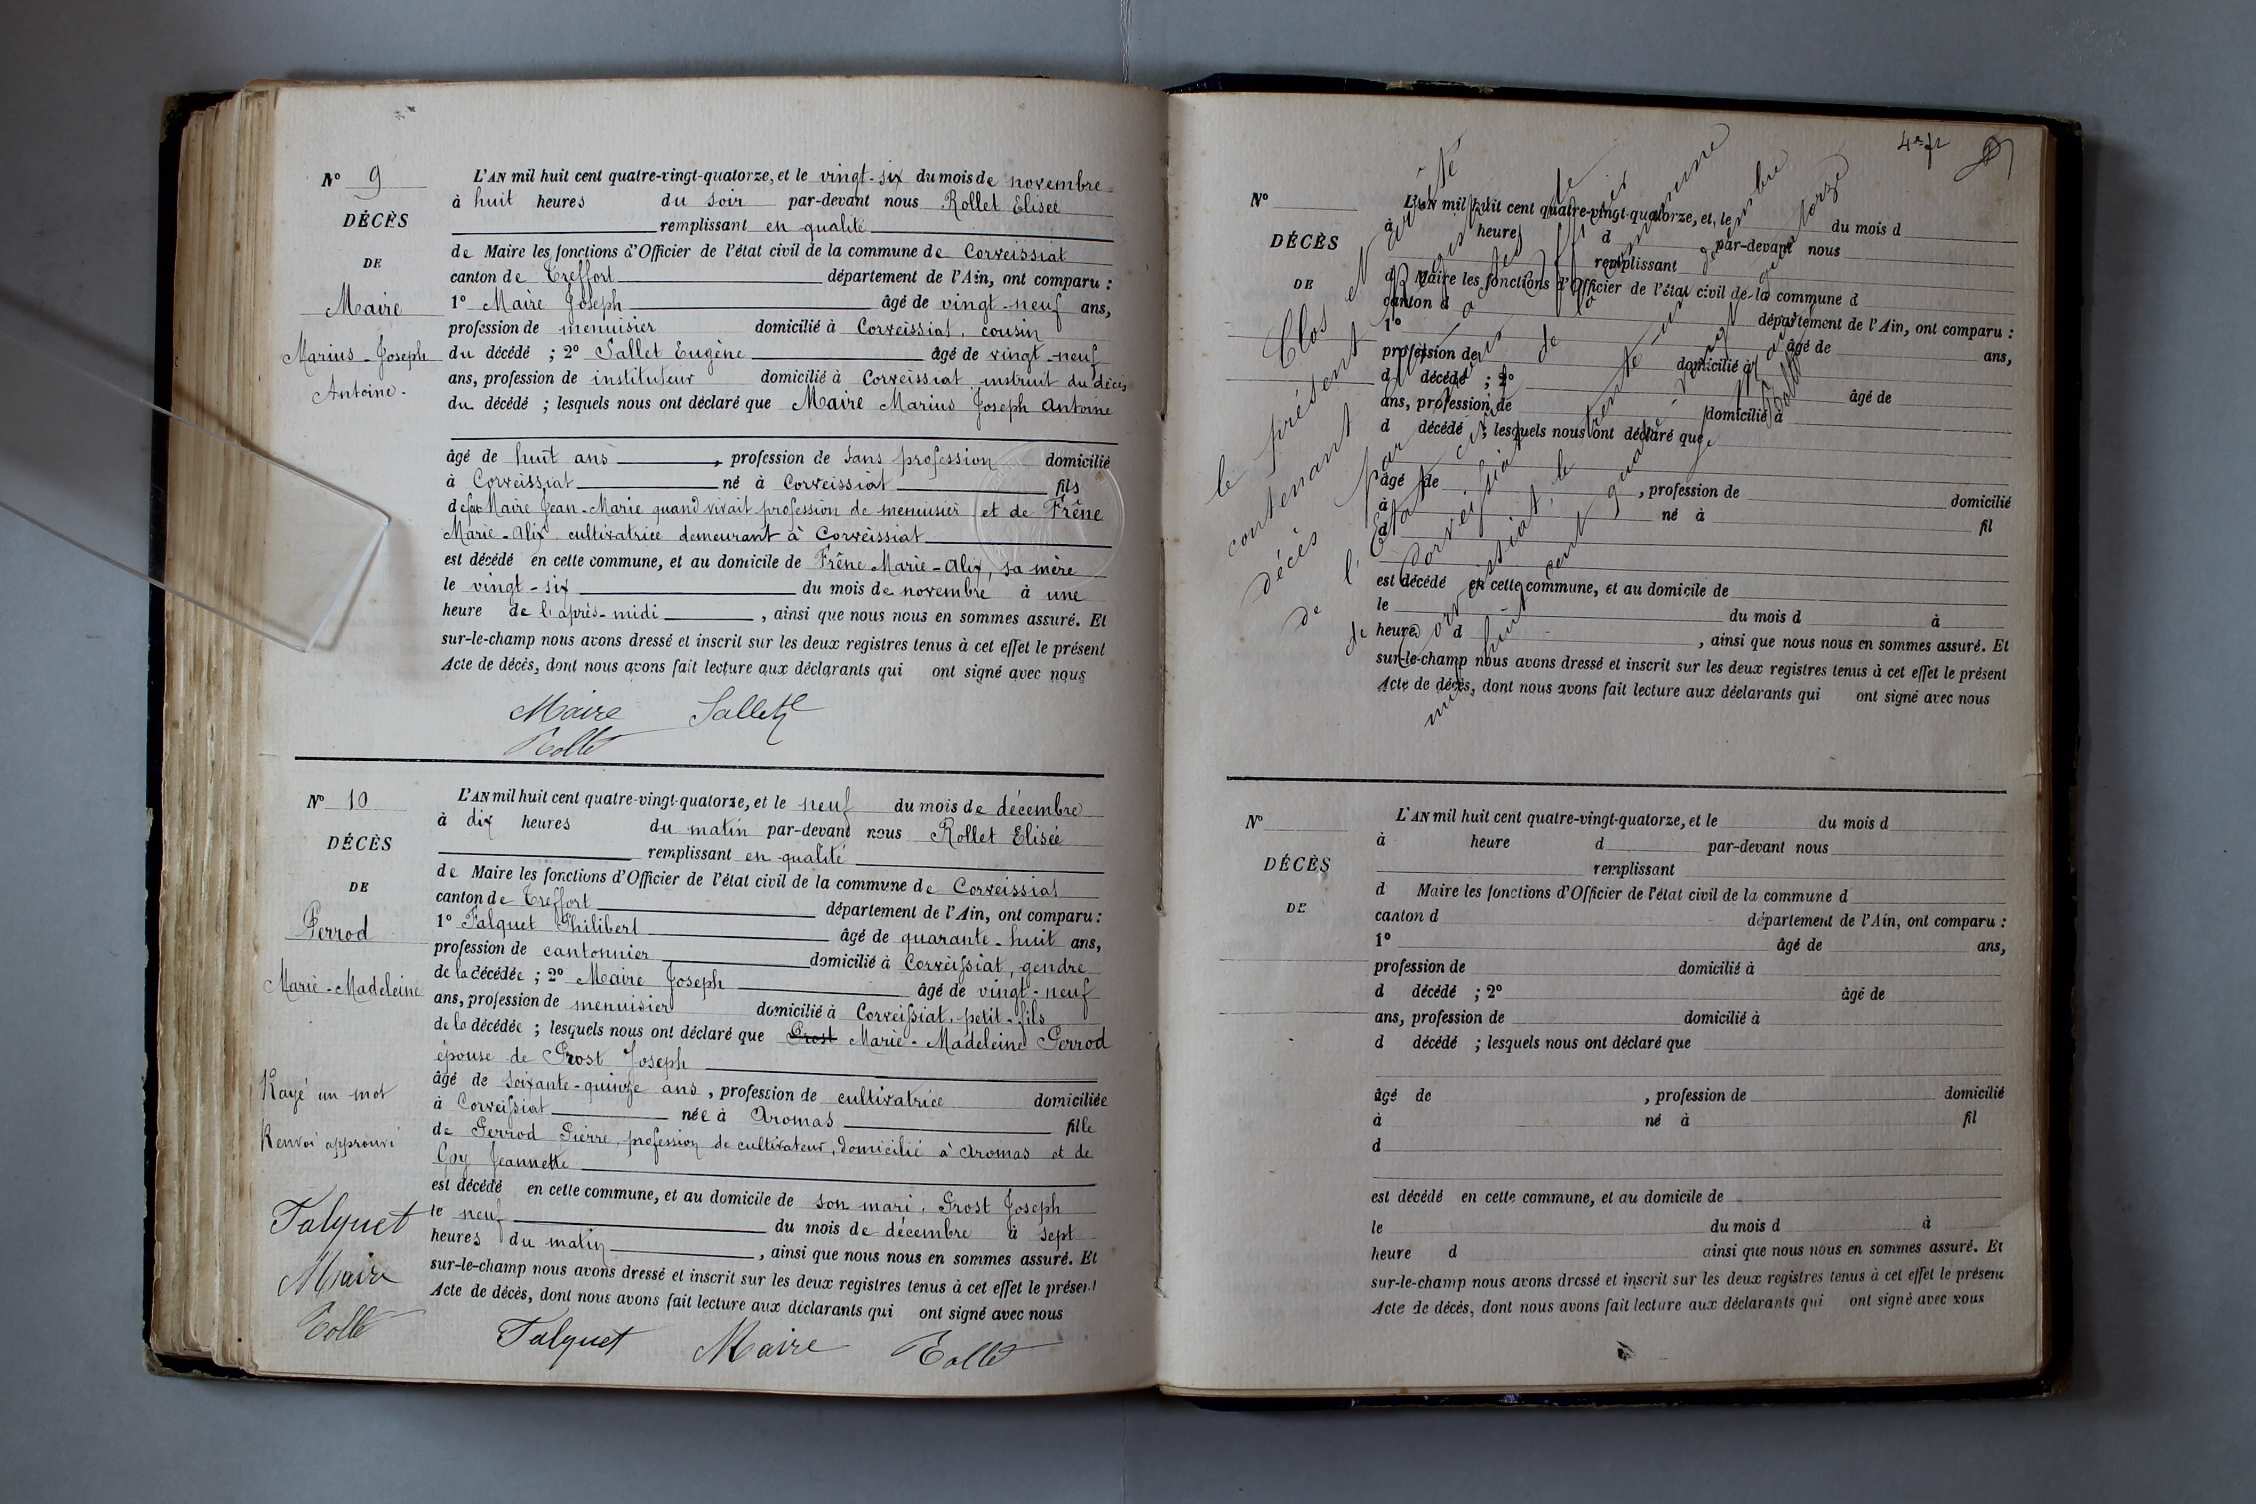 N° 9
DÉCÈS
DE
Maire
Marius-Joseph
Antoine.
L'AN mil huit cent quatre-vingt-quatorze, et le vingt-six du mois de novembre
à huit heures du soir par-devant nous Rollet Elisée
remplissant en qualité
de Maire les fonctions d'Officier de l'état civil de la commune de Corveissiat
canton de Treffort département de l'Ain, ont comparu :
1° Maire Joseph âgé de vingt-neuf ans,
profession de menuisier domicilié à Corveissiat, cousin
du décédé ; 2° Sallet Eugène âgé de vingt-neuf
ans, profession de instituteur domicilié à Corveissiat instruit du décès
du décédé ; lesquels nous ont déclaré que Maire Marius Joseph Antoine
âgé de huit ans, profession de sans profession domicilié
à Corveissiat né à Corveissiat fils
de feu Maire Jean-Marie quand vivait profession de menuisier et de Frêne
Marie-Alix cultivatrice demeurant à Corveissiat
est décédé en cette commune, et au domicile de Frêne Marie-Alix, sa mère
le vingt-six du mois de novembre à une
heure de l'après-midi, ainsi que nous nous en sommes assuré. Et
sur-le-champ nous avons dressé et inscrit sur les deux registres tenus à cet effet le présent
Acte de décès, dont nous avons fait lecture aux déclarants qui ont signé avec nous
Maire Sallet
Rollet
N° 10
DÉCÈS
DE
Perrod
Marie-Madeleine
L'AN mil huit cent quatre-vingt-quatorze, et le neuf du mois de décembre
à dix heures du matin par-devant nous Rollet Elisée
remplissant en qualité
de Maire les fonctions d'Officier de l'état civil de la commune de Corveissiat
canton de Treffort département de l'Ain, ont comparu :
1° Falquet Philibert âgé de quarante-huit ans,
profession de cantonnier domicilié à Corveissiat, gendre
de la décédée ; 2° Maire Joseph âgé de vingt-neuf
ans, profession de menuisier domicilié à Corveissiat, petit-fils
de la décédée ; lesquels nous ont déclaré que Prost Marie-Madeleine Perrod
épouse de Prost Joseph
âgé de soixante-quinze ans, profession de cultivatrice domiciliée
à Corveissiat née à Aromas fille
de Perrod Pierre, profession de cultivateur, domicilié à Aromas et de
Goy Jeannette
est décédé en cette commune, et au domicile de son mari, Prost Joseph
le neuf du mois de décembre à sept
heures du matin, ainsi que nous nous en sommes assuré. Et
sur-le-champ nous avons dressé et inscrit sur les deux registres tenus à cet effet le présent
Acte de décès, dont nous avons fait lecture aux déclarants qui ont signé avec nous
Rayé un mot
Renvoi approuvé
Falquet
Maire
Rollet
Falquet Maire Rollet
N°
DÉCÈS
DE
L'AN mil huit cent quatre-vingt-quatorze, et le du mois d
à heure d par-devant nous
remplissant
d Maire les fonctions d'Officier de l'état civil de la commune d
canton d département de l'Ain, ont comparu :
1° âgé de ans,
profession de domicilié à
d décédé ; 2° âgé de
ans, profession de domicilié à
d décédé ; lesquels nous ont déclaré que
âgé de , profession de domicilié
à né à fil
d
est décédé en cette commune, et au domicile de
le du mois d à
heure d , ainsi que nous nous en sommes assuré. Et
sur-le-champ nous avons dressé et inscrit sur les deux registres tenus à cet effet le présent
Acte de décès, dont nous avons fait lecture aux déclarants qui ont signé avec nous
Clos et arrêté
le présent Registre
contenant
décès par nous officier
de l'Etat civil de la commune
de Corveissiat
Corveissiat, le trente-un décembre
mil huit cent quatre-vingt-quatorze
Rollet
N°
DÉCÈS
DE
L'AN mil huit cent quatre-vingt-quatorze, et le du mois d
à heure d par-devant nous
remplissant
d Maire les fonctions d'Officier de l'état civil de la commune d
canton d département de l'Ain, ont comparu :
1° âgé de ans,
profession de domicilié à
d décédé ; 2° âgé de
ans, profession de domicilié à
d décédé ; lesquels nous ont déclaré que
âgé de , profession de domicilié
à né à fil
d
est décédé en cette commune, et au domicile de
le du mois d à
heure d ainsi que nous nous en sommes assuré. Et
sur-le-champ nous avons dressé et inscrit sur les deux registres tenus à cet effet le présent
Acte de décès, dont nous avons fait lecture aux déclarants qui ont signé avec nous